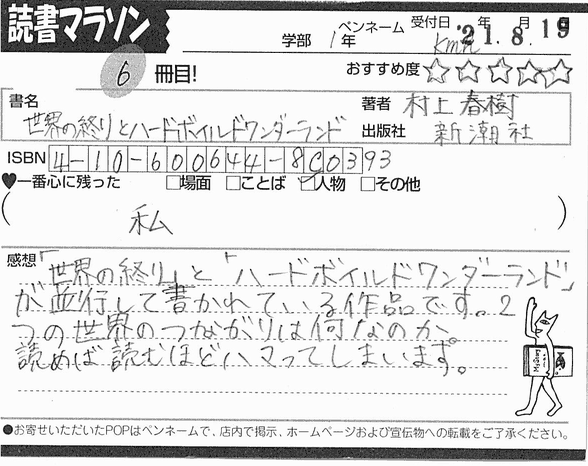 読書マラソン
学部 1年 ペンネーム kmn 受付日 '21年8月19日
6 冊目! おすすめ度 ☆☆☆☆☆
書名 世界の終りとハードボイルドワンダーランド
著者 村上春樹
出版社 新潮社
ISBN 4-10-600644-8 C0393
♥一番心に残った □場面 □ことば ☑人物 □その他
( 私 )
感想 「世界の終り」と「ハードボイルドワンダーランド」
が並行して書かれている作品です。2
つの世界のつながりは何なのか。
読めば読むほどハマってしまいます。
●お寄せいただいたPOPはペンネームで、店内で掲示、ホームページおよび宣伝物への転載をご了承ください。